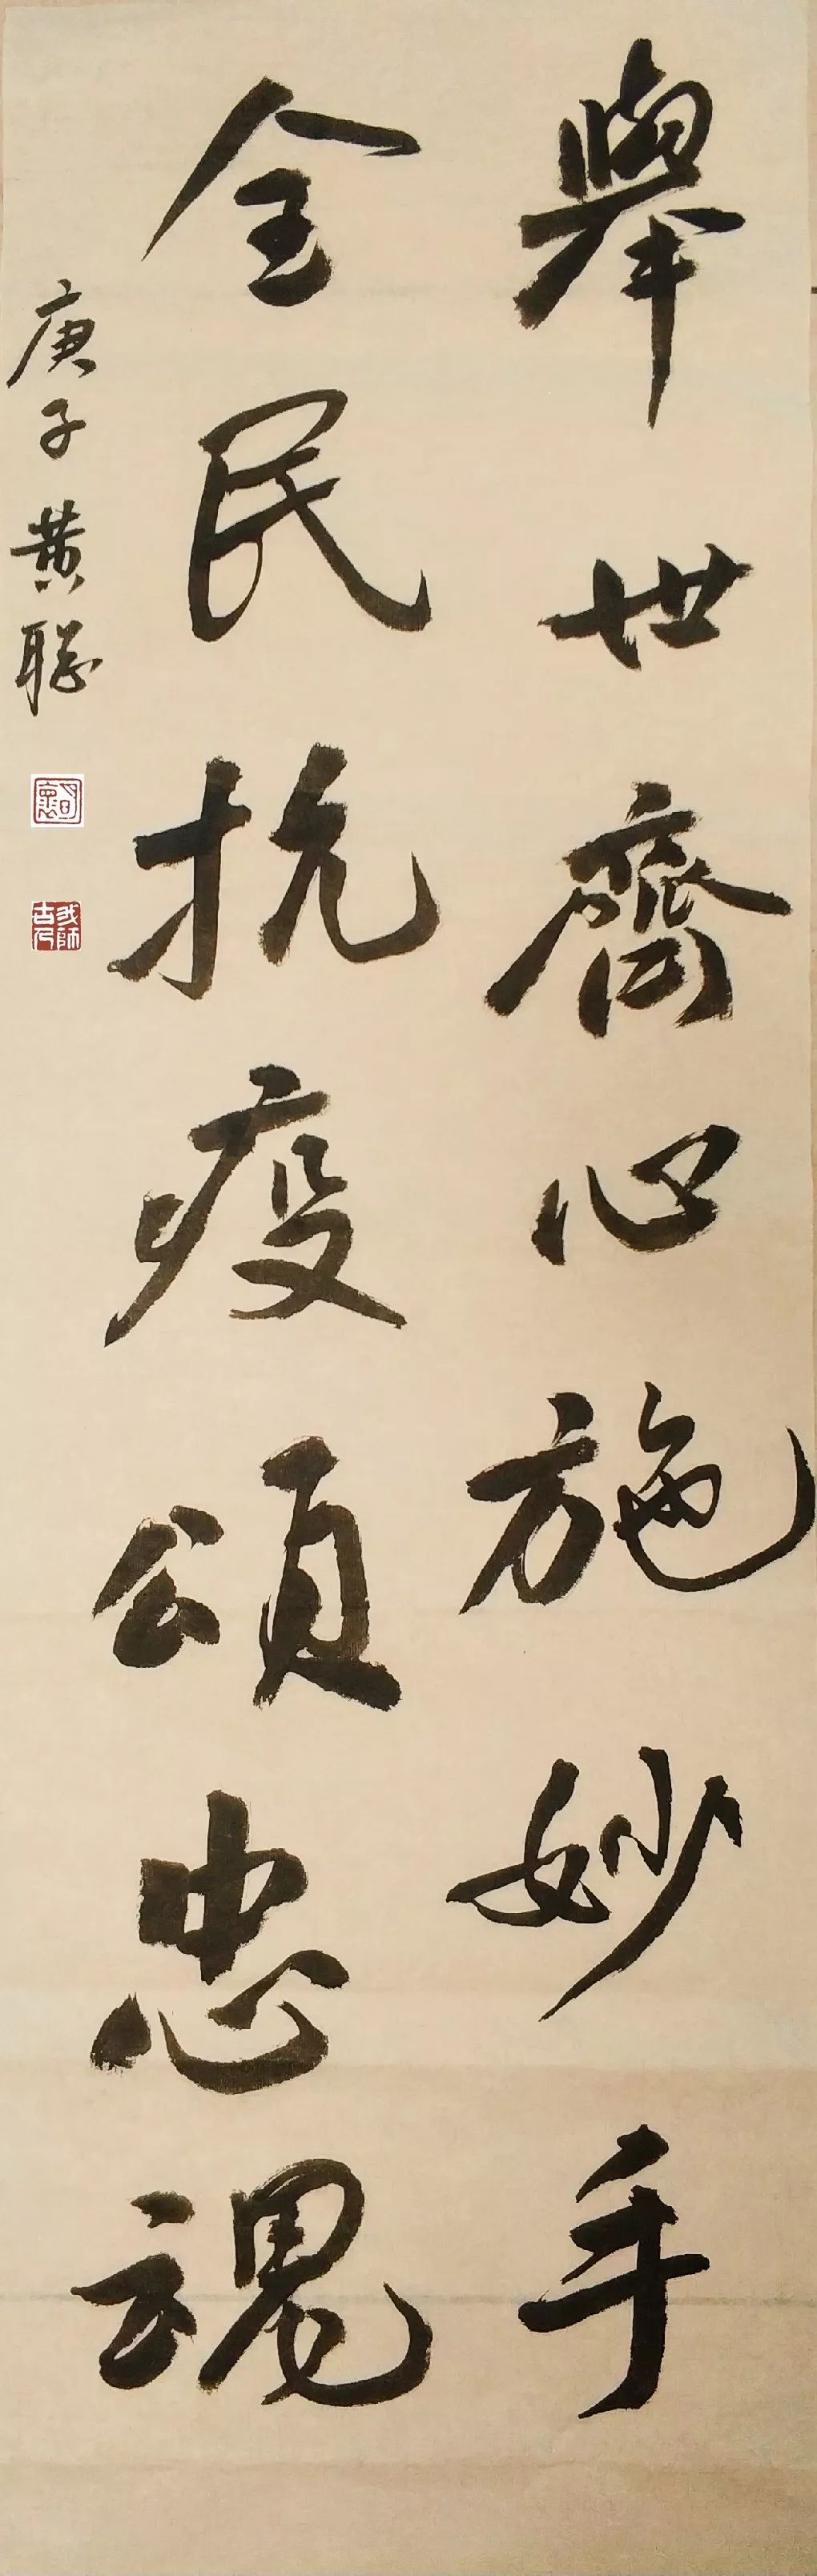 舉世齊心施妙手
全民抗疫頌忠魂
庚子黄聪